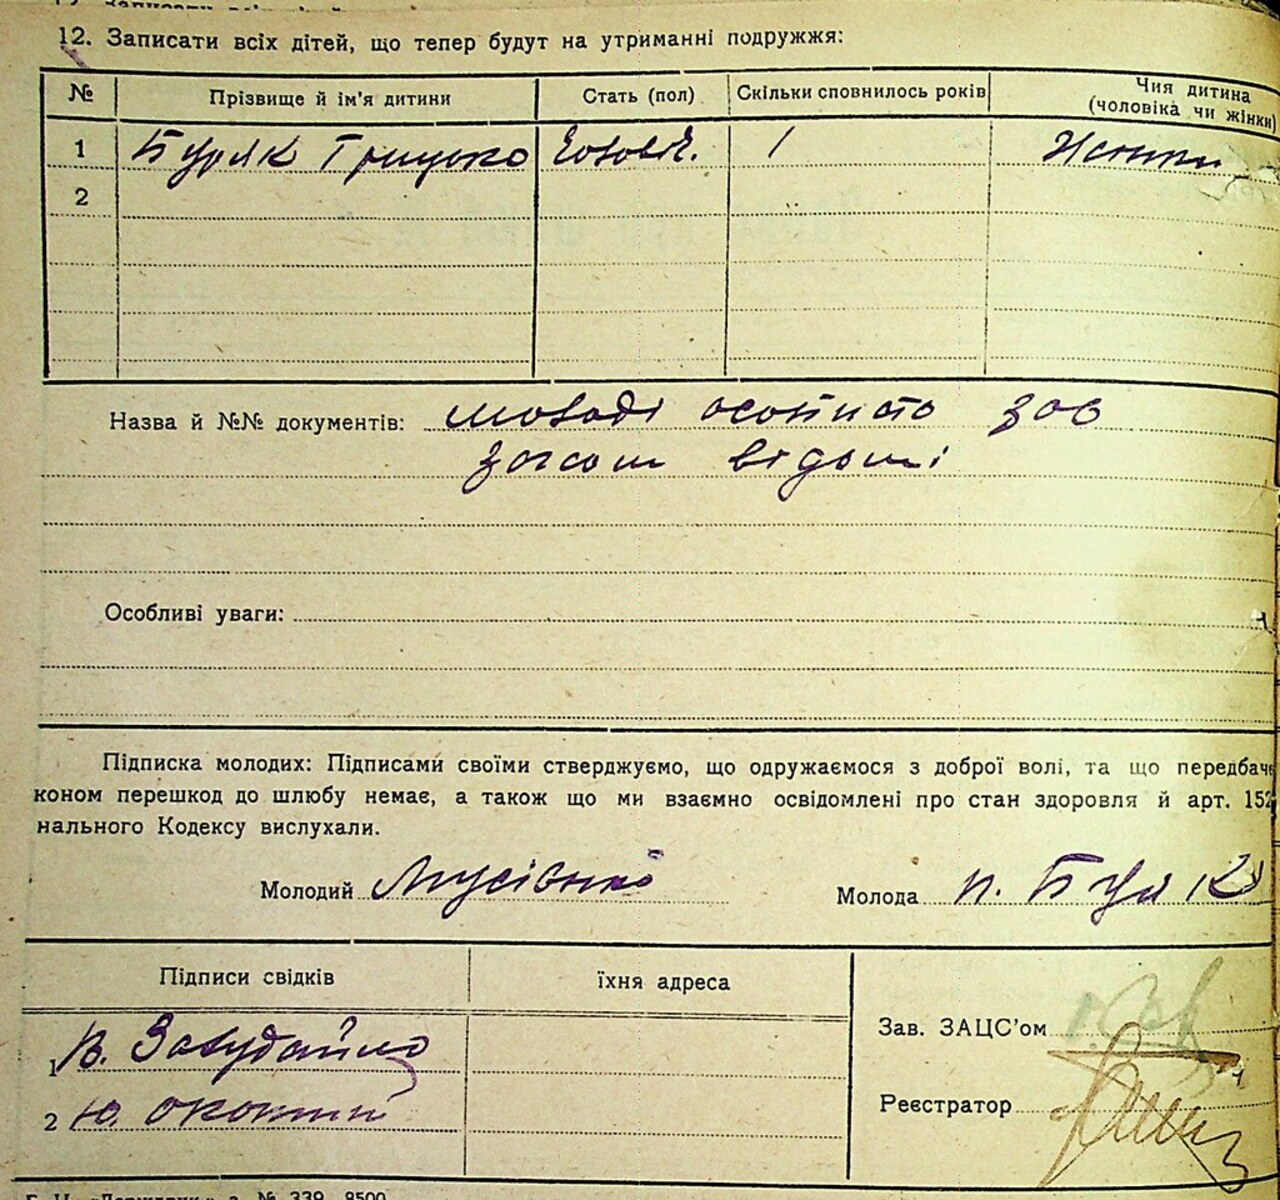 12. Записати всіх дітей, що тепер будут на утриманні подружжя:
№ Прізвище й ім'я дитини Стать (пол) Скільки сповнилось років Чия дитина (чоловіка чи жінки)
1 Буряк Грицько чоловіч. 1 Жінки
2
Назва й №№ документів: молоді особисто зав
загсом відомі
Особливі уваги:
Підписка молодих: Підписами своїми стверджуємо, що одружаємося з доброї волі, та що передбач
коном перешкод до шлюбу немає, а також що ми взаємно освідомлені про стан здоровля й арт. 152
нального Кодексу вислухали.
Молодий Мусієнко Молода п. Буряк
Підписи свідків їхня адреса
Зав. ЗАЦС'ом
1 В.
Реєстратор
2 Ю.
№ 339 8500